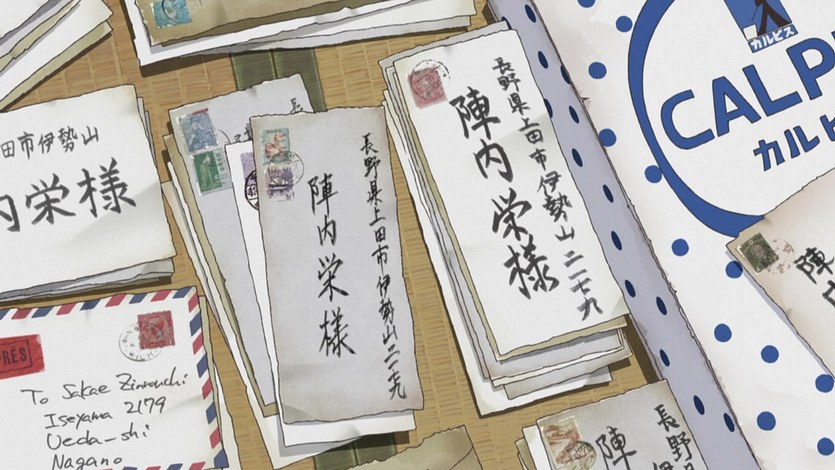 田市伊勢山
内栄様
長
長野県上田市伊勢山二一七九
陣内栄様
長野県上田市伊勢山二一七九
陣内栄様
カルピス
CALP
カルピ
陣
PRÉS
To Sakae Zinnouchi
Iseyama 2179
Ueda-shi
Nagano
長野
陣